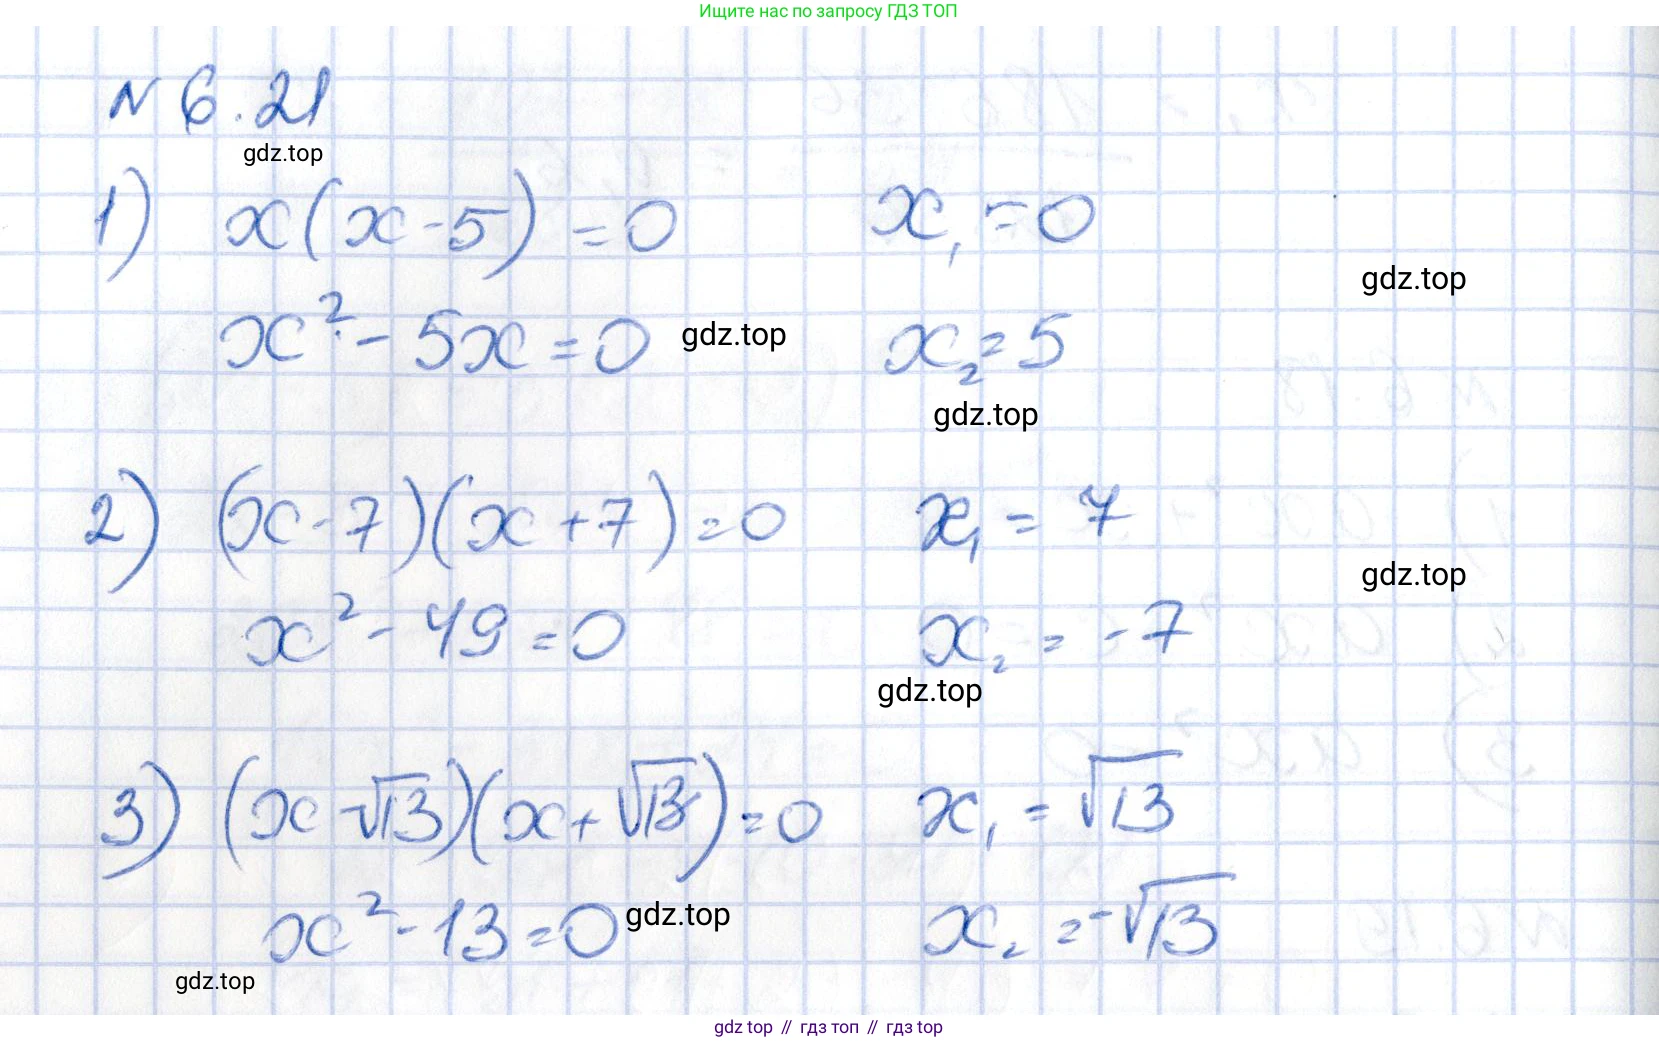 Ищите нас по запросу ГДЗ ТОП
№ 6.21
gdz.top
1) x(x-5)=0 x₁=0
gdz.top
x²-5x=0 gdz.top x₂=5
gdz.top
2) (x-7)(x+7)=0 x₁=7
gdz.top
x²-49=0 x₂=-7
gdz.top
3) (x-√13)(x+√13)=0 x₁=√13
x²-13=0 gdz.top x₂=-√13
gdz.top
gdz top // гдз топ // гдз top